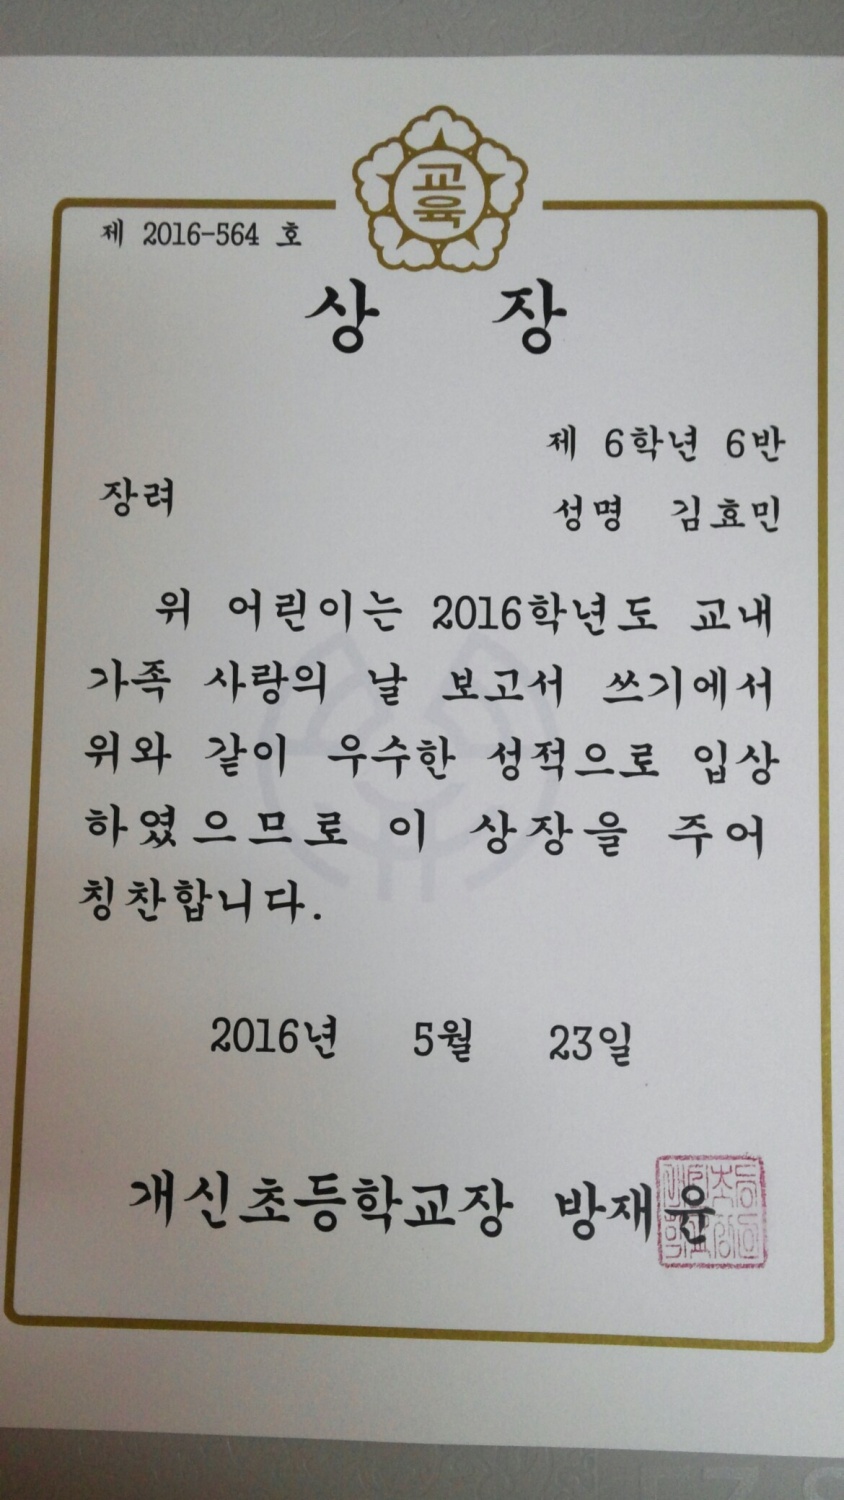 교육
제 2016-564 호
상 장
제 6학년 6반
장려
성명 김효민
위 어린이는 2016학년도 교내
가족 사랑의 날 보고서 쓰기에서
위와 같이 우수한 성적으로 입상
하였으므로 이 상장을 주어
칭찬합니다.
2016년 5월 23일
개신초등학교장 방재윤